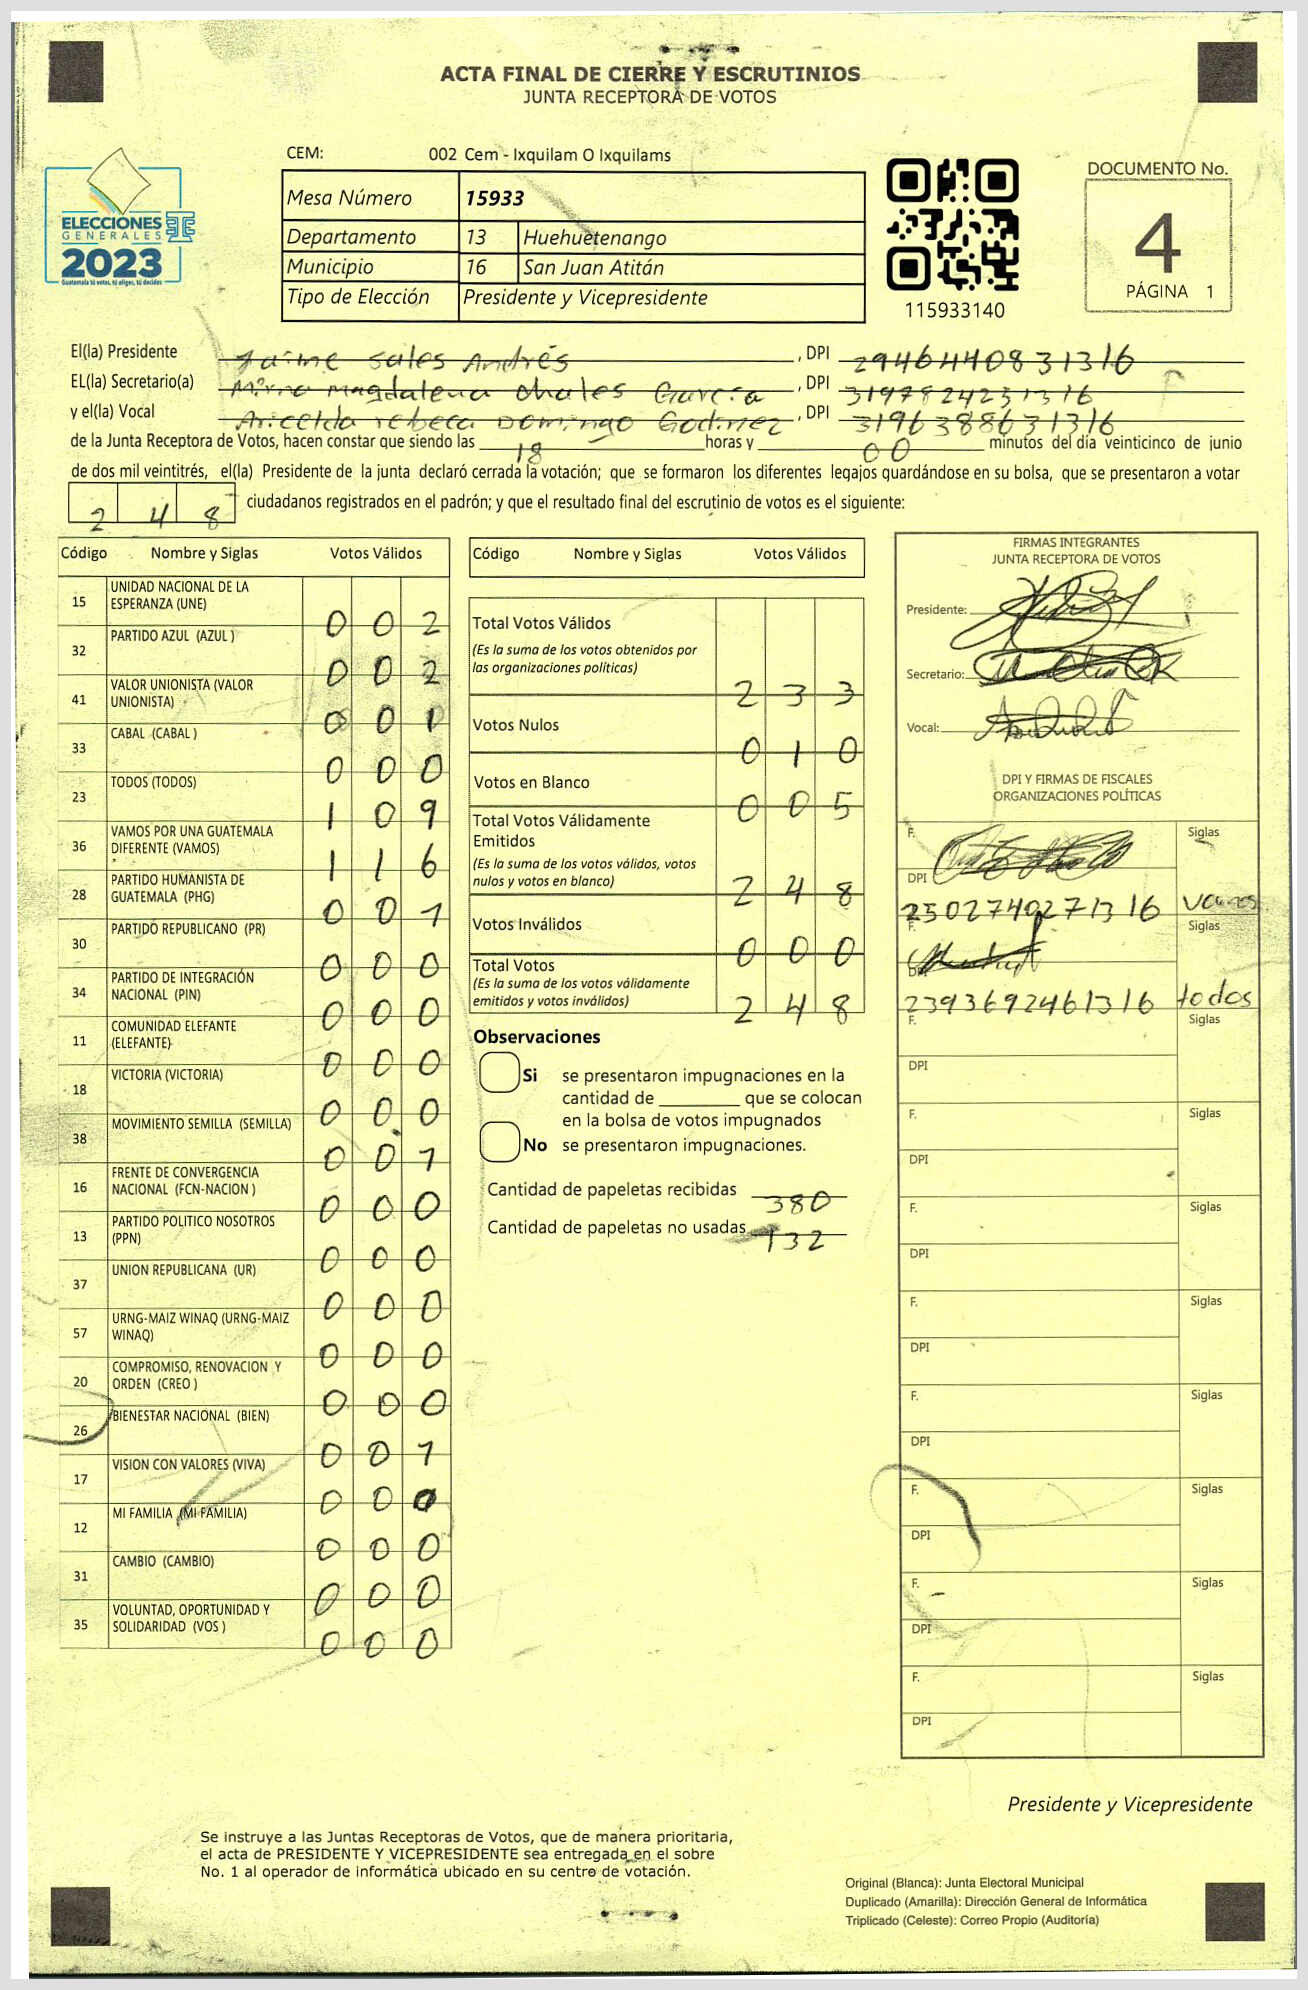 ACTA FINAL DE CIERRE Y ESCRUTINIOS
JUNTA RECEPTORA DE VOTOS
CEM: 002 Cem - Ixquilam O Ixquilams
ELECCIONES
GENERALES
2023
Guatemala tú votas, tú eliges, tú decides
Mesa Número 15933
Departamento 13 Huehuetenango
Municipio 16 San Juan Atitán
Tipo de Elección Presidente y Vicepresidente
115933140
DOCUMENTO No.
4
PÁGINA 1
El(la) Presidente Jaime Sales Andrés , DPI 2946440831316
EL(la) Secretario(a) Mirna Magdalena Chales García , DPI 3197824251316
y el(la) Vocal Aricelda rebeca Domingo Godinez , DPI 3196388631316
de la Junta Receptora de Votos, hacen constar que siendo las 18 horas y 00 minutos del día veinticinco de junio
de dos mil veintitrés, el(la) Presidente de la junta declaró cerrada la votación; que se formaron los diferentes legajos guardándose en su bolsa, que se presentaron a votar
2 4 8 ciudadanos registrados en el padrón; y que el resultado final del escrutinio de votos es el siguiente:
Código Nombre y Siglas Votos Válidos
15 UNIDAD NACIONAL DE LA
ESPERANZA (UNE) 0 0 2
32 PARTIDO AZUL (AZUL ) 0 0 2
41 VALOR UNIONISTA (VALOR
UNIONISTA) 0 0 1
33 CABAL (CABAL ) 0 0 0
23 TODOS (TODOS) 1 0 9
36 VAMOS POR UNA GUATEMALA
DIFERENTE (VAMOS) 1 1 6
28 PARTIDO HUMANISTA DE
GUATEMALA (PHG) 0 0 1
30 PARTIDO REPUBLICANO (PR) 0 0 0
34 PARTIDO DE INTEGRACIÓN
NACIONAL (PIN) 0 0 0
11 COMUNIDAD ELEFANTE
(ELEFANTE) 0 0 0
18 VICTORIA (VICTORIA) 0 0 0
38 MOVIMIENTO SEMILLA (SEMILLA) 0 0 1
16 FRENTE DE CONVERGENCIA
NACIONAL (FCN-NACION ) 0 0 0
13 PARTIDO POLITICO NOSOTROS
(PPN) 0 0 0
37 UNION REPUBLICANA (UR) 0 0 0
57 URNG-MAIZ WINAQ (URNG-MAIZ
WINAQ) 0 0 0
20 COMPROMISO, RENOVACION Y
ORDEN (CREO ) 0 0 0
26 BIENESTAR NACIONAL (BIEN) 0 0 1
17 VISION CON VALORES (VIVA) 0 0 0
12 MI FAMILIA (MI FAMILIA) 0 0 0
31 CAMBIO (CAMBIO) 0 0 0
35 VOLUNTAD, OPORTUNIDAD Y
SOLIDARIDAD (VOS ) 0 0 0
Código Nombre y Siglas Votos Válidos
Total Votos Válidos
(Es la suma de los votos obtenidos por
las organizaciones políticas) 2 3 3
Votos Nulos 0 1 0
Votos en Blanco 0 0 5
Total Votos Válidamente
Emitidos
(Es la suma de los votos válidos, votos
nulos y votos en blanco) 2 4 8
Votos Inválidos 0 0 0
Total Votos
(Es la suma de los votos válidamente
emitidos y votos inválidos) 2 4 8
Observaciones
Si se presentaron impugnaciones en la
cantidad de ________ que se colocan
en la bolsa de votos impugnados
No se presentaron impugnaciones.
Cantidad de papeletas recibidas 380
Cantidad de papeletas no usadas 132
FIRMAS INTEGRANTES
JUNTA RECEPTORA DE VOTOS
Presidente:
Secretario:
Vocal:
DPI Y FIRMAS DE FISCALES
ORGANIZACIONES POLÍTICAS
F. Siglas
DPI 2502740271316 vamos
F. Siglas
DPI 2393692461316 todos
F. Siglas
DPI
F. Siglas
DPI
F. Siglas
DPI
F. Siglas
DPI
F. Siglas
DPI
F. Siglas
DPI
F. Siglas
DPI
F. Siglas
DPI
Presidente y Vicepresidente
Se instruye a las Juntas Receptoras de Votos, que de manera prioritaria,
el acta de PRESIDENTE Y VICEPRESIDENTE sea entregada en el sobre
No. 1 al operador de informática ubicado en su centro de votación.
Original (Blanca): Junta Electoral Municipal
Duplicado (Amarilla): Dirección General de Informática
Triplicado (Celeste): Correo Propio (Auditoría)